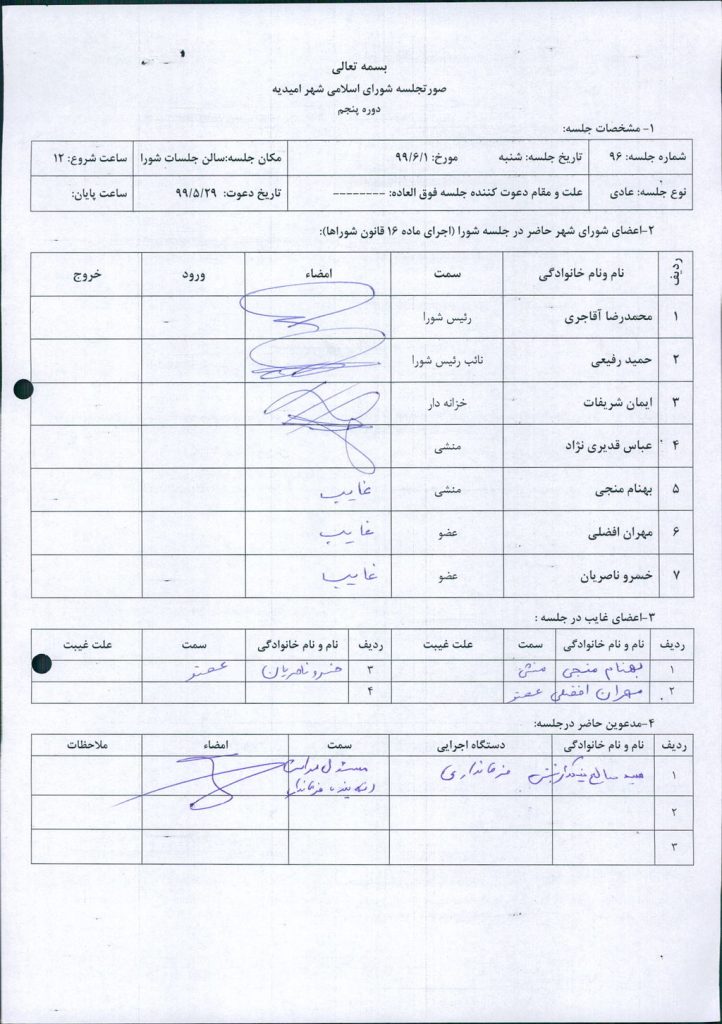 بسمه تعالی
صورتجلسه شورای اسلامی شهر امیدیه
دوره پنجم
۱- مشخصات جلسه:
شماره جلسه: ۹۶ تاریخ جلسه: شنبه مورخ: ۹۹/۶/۱ مکان جلسه:سالن جلسات شورا ساعت شروع: ۱۲
نوع جلسه: عادی علت و مقام دعوت کننده جلسه فوق العاده: -------- تاریخ دعوت: ۹۹/۵/۲۹ ساعت پایان:
۲-اعضای شورای شهر حاضر در جلسه شورا (اجرای ماده ۱۶ قانون شوراها):
ردیف نام ونام خانوادگی سمت امضاء ورود خروج
۱ محمدرضا آقاجری رئیس شورا
۲ حمید رفیعی نائب رئیس شورا
۳ ایمان شریفات خزانه دار
۴ عباس قدیری نژاد منشی
۵ بهنام منجی منشی غایب
۶ مهران افضلی عضو غایب
۷ خسرو ناصریان عضو غایب
۳-اعضای غایب در جلسه :
ردیف نام و نام خانوادگی سمت علت غیبت ردیف نام و نام خانوادگی سمت علت غیبت
۱ بهنام منجی منشی ۳ خسرو ناصریان عضو
۲ مهران افضلی عضو ۴
۴-مدعوین حاضر درجلسه:
ردیف نام و نام خانوادگی دستگاه اجرایی سمت امضاء ملاحظات
۱ فرمانداری
۲
۳